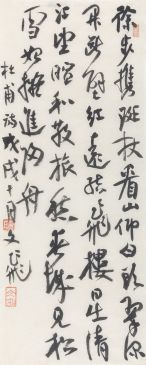 徐步携斑杖看山仰白头翠深
開断壁红遠结飛樓日出清
江望暄和散旅愁春城見松
雪始拟進归舟
杜甫诗戊戌十月文飛